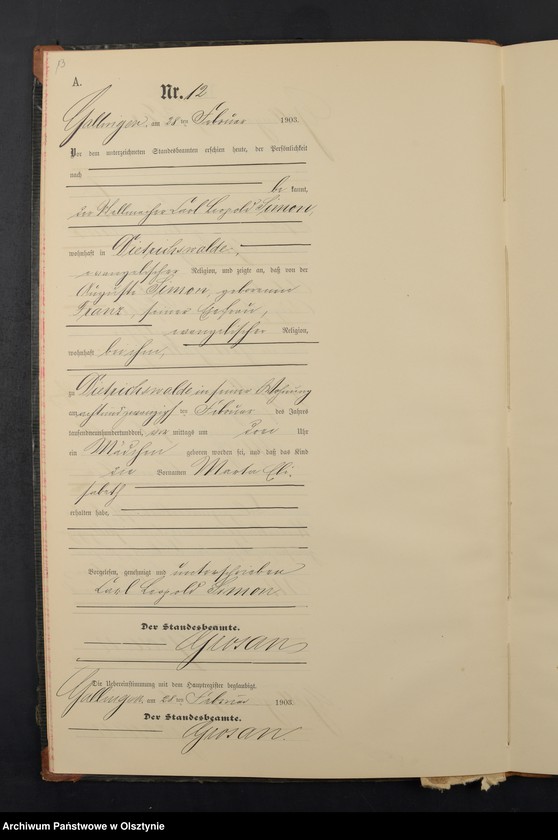 13
A.
Nr. 12
Gallingen, am 28 ten Februar 1903.
Vor dem unterzeichneten Standesbeamten erschien heute, der Persönlichkeit
nach
be kannt,
der Stellmacher Carl Leopold Simon,
wohnhaft in Dietrichswalde,
evangelischer Religion, und zeigte an, daß von der
Auguste Simon, geborenen
Franz, seiner Ehefrau,
evangelischer Religion,
wohnhaft bei ihm,
zu Dietrichswalde in seiner Wohnung
am achtundzwanzigsten ten Februar des Jahres
tausendneunhundertdrei, vor mittags um Uhr
ein Mädchen geboren worden sei, und daß das Kind
Vornamen Marta Eli-
sabeth
erhalten habe.
Vorgelesen, genehmigt und unterschrieben
Carl Leopold Simon.
Der Standesbeamte.
Grosan
Die Uebereinstimmung mit dem Hauptregister beglaubigt.
Gallingen, am 28 ten Februar 1903.
Der Standesbeamte.
Grosan.
Archiwum Państwowe w Olsztynie